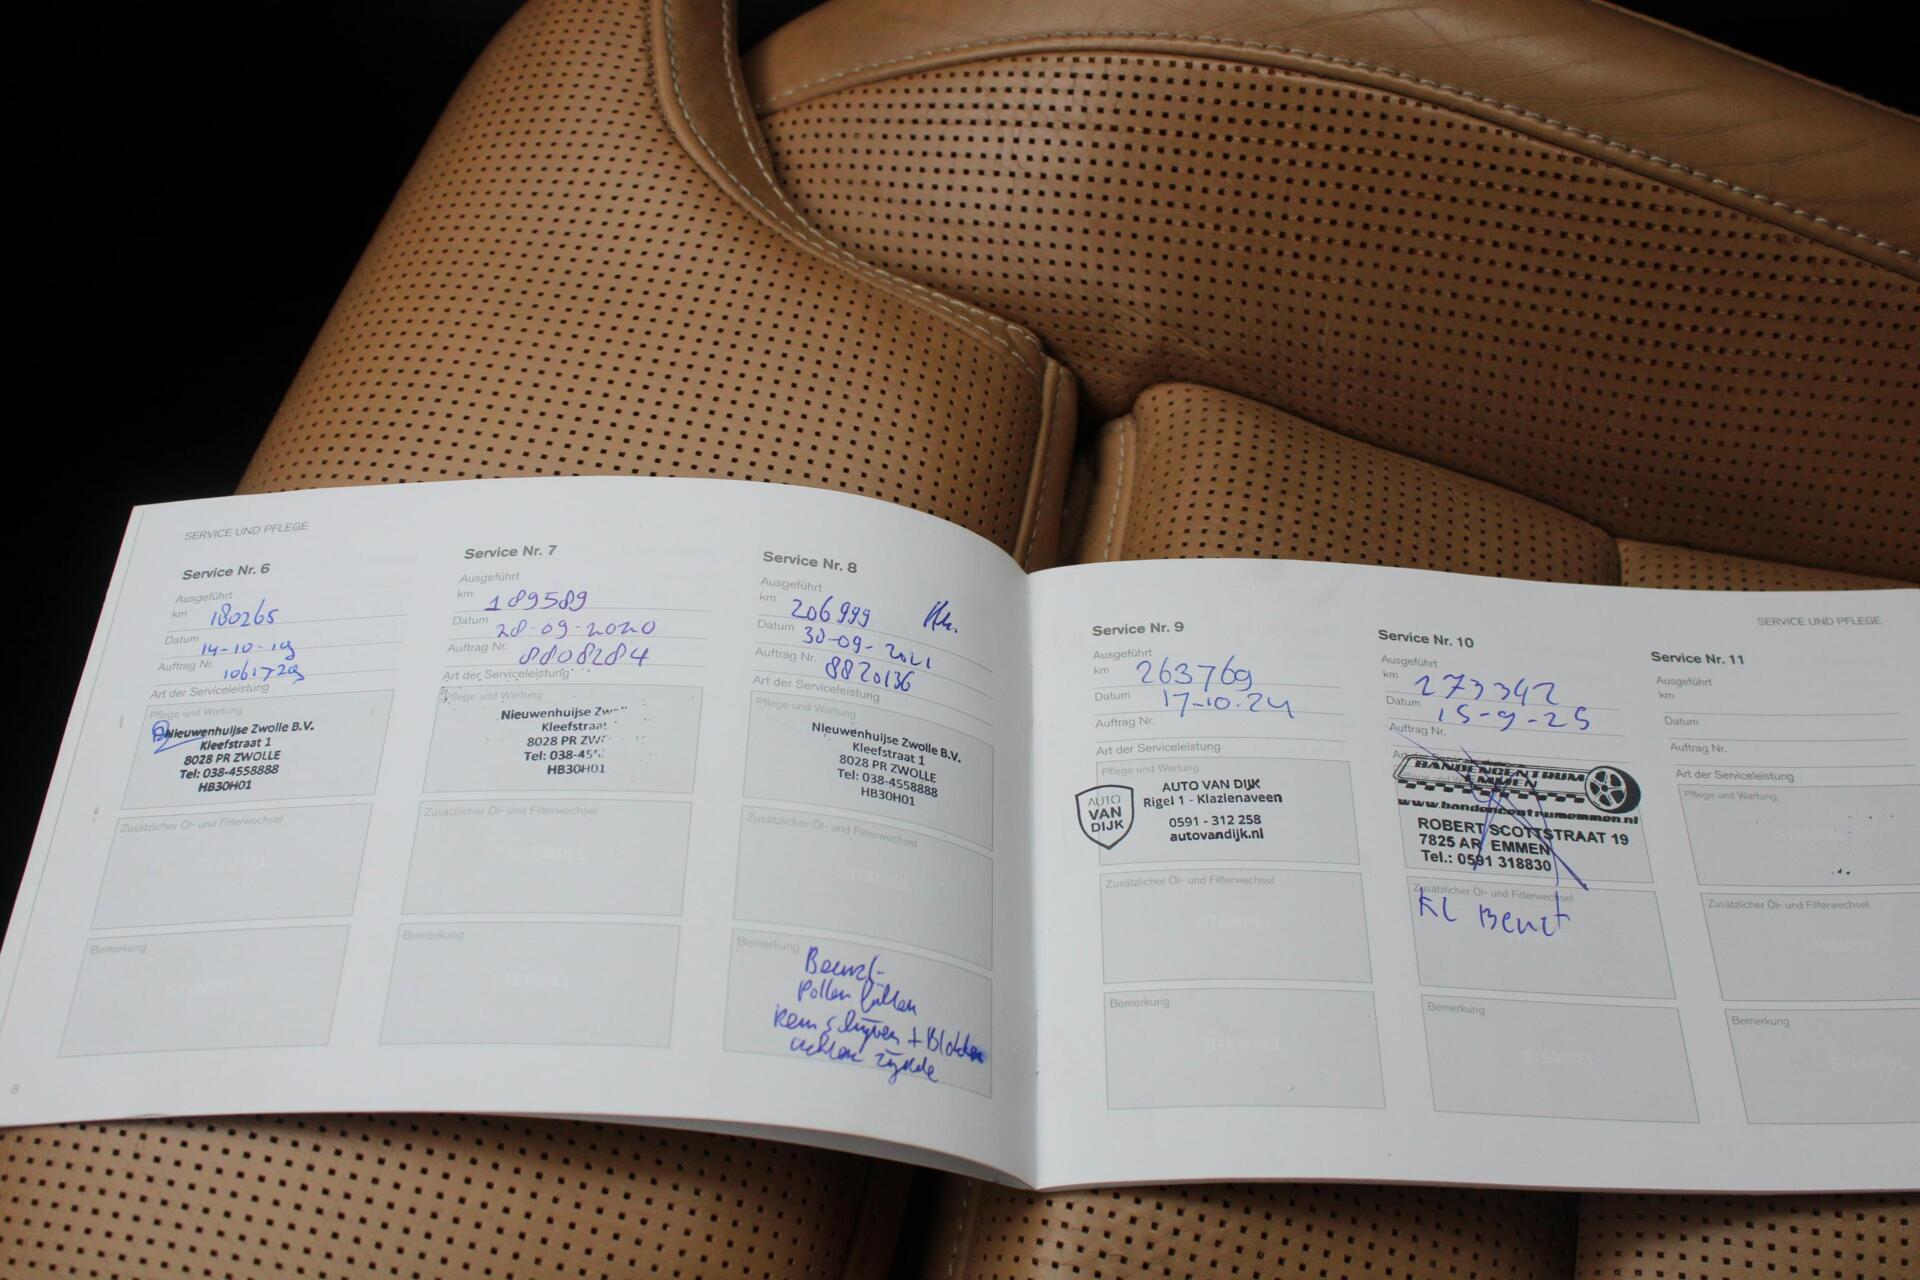 SERVICE UND PFLEGE
Service Nr. 6
Ausgeführt
km 180265
Datum 14-10-19
Auftrag Nr. 1061729
Art der Serviceleistung
Pflege und Wartung
Nieuwenhuijse Zwolle B.V.
Kleefstraat 1
8028 PR ZWOLLE
Tel: 038-4558888
HB30H01
Zusätzlicher Öl- und Filterwechsel
STEMPEL
Bemerkung
STEMPEL
8
Service Nr. 7
Ausgeführt
km 189589
Datum 28-09-2020
Auftrag Nr. 8808284
Art der Serviceleistung
Pflege und Wartung
Nieuwenhuijse Zw
Kleefstraat
8028 PR ZW
Tel: 038-45
HB30H01
Zusätzlicher Öl- und Filterwechsel
STEMPEL
Bemerkung
STEMPEL
Service Nr. 8
Ausgeführt
km 206999
Datum 30-09-2021
Auftrag Nr. 8820136
Art der Serviceleistung
Pflege und Wartung
Nieuwenhuijse Zwolle B.V.
Kleefstraat 1
8028 PR ZWOLLE
Tel: 038-4558888
HB30H01
Zusätzlicher Öl- und Filterwechsel
STEMPEL
Bemerkung
Beurt-
Pollen
rem schijven + Blokken
achter zijde
SERVICE UND PFLEGE
Service Nr. 9
Ausgeführt
km 263769
Datum 17-10-24
Auftrag Nr.
Art der Serviceleistung
Pflege und Wartung
AUTO VAN DIJK
AUTO VAN DIJK
Rigel 1 - Klazienaveen
0591 - 312 258
autovandijk.nl
Zusätzlicher Öl- und Filterwechsel
STEMPEL
Bemerkung
STEMPEL
Service Nr. 10
Ausgeführt
km 273342
Datum 15-9-25
Auftrag Nr.
BANDENCENTRUM
EMMEN
www.bandencentrumemmen.nl
ROBERT SCOTTSTRAAT 19
7825 AR EMMEN
Tel.: 0591 318830
Zusätzlicher Öl- und Filterwechsel
Kl Beurt
Bemerkung
STEMPEL
Service Nr. 11
Ausgeführt
km
Datum
Auftrag Nr.
Art der Serviceleistung
Pflege und Wartung
STEMPEL
Zusätzlicher Öl- und Filterwechsel
STEMPEL
Bemerkung
STEMPEL